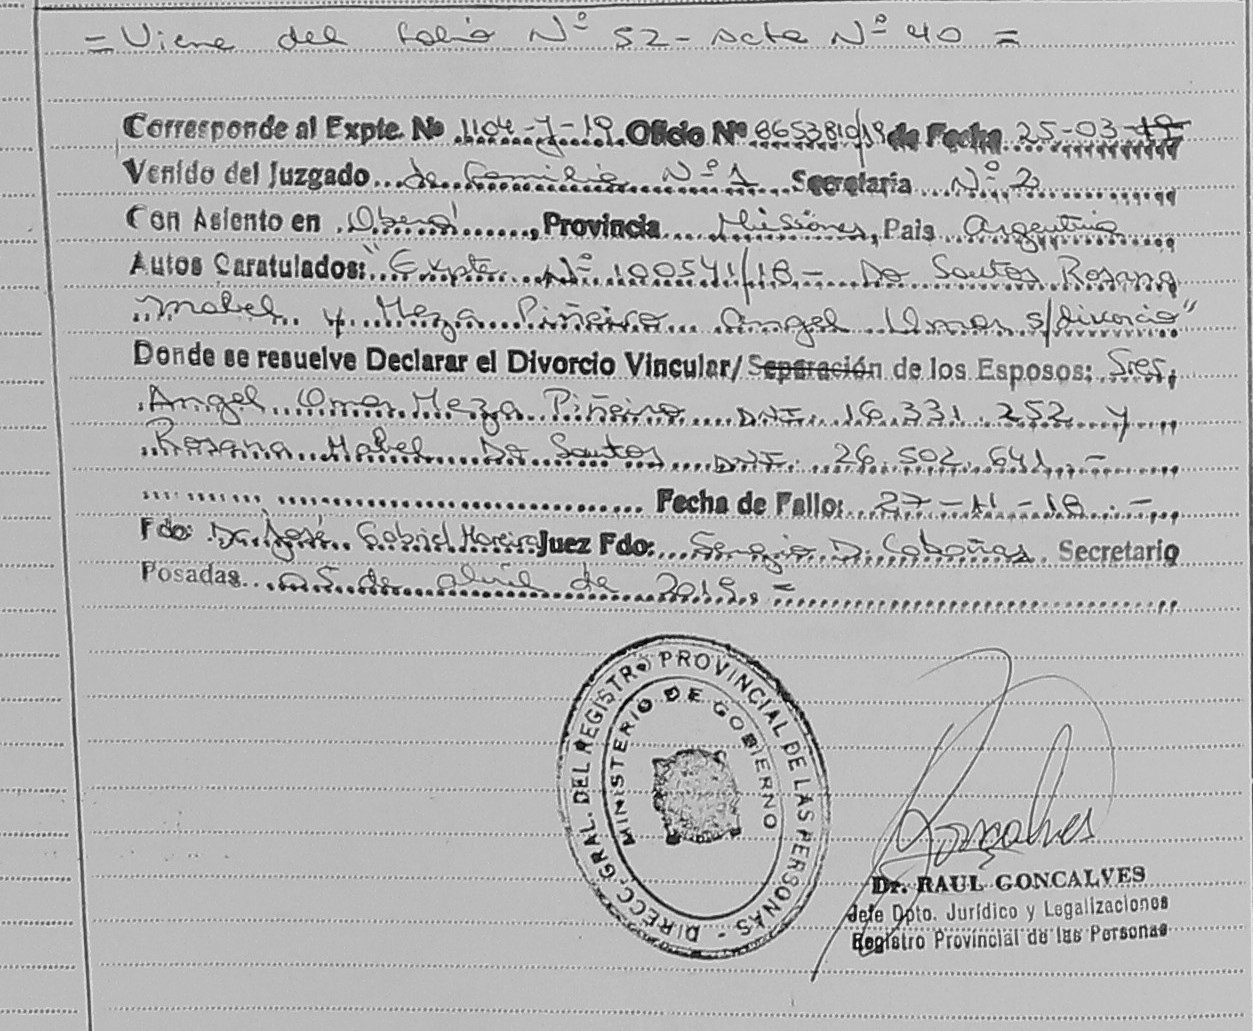 = Viene del folio Nº 52 - Acta Nº 40 =
Corresponde al Expte. Nº 1104-J-19 Oficio Nº 865381/19 de Fecha 25-03-19
Venido del Juzgado de Familia Nº 1 Secretaria Nº 2
Con Asiento en Oberá, Provincia Misiones, Pais Argentina
Autos Caratulados: "Expte Nº 100541/18 - Do Santos Rosana
Mabel y Meza Piñeiro Angel Omar s/divorcio"
Donde se resuelve Declarar el Divorcio Vincular/ Separación de los Esposos: Sres,
Angel Omar Meza Piñeiro DNI. 16.331.252 y
Rosana Mabel Do Santos DNI. 26.502.641.-
Fecha de Fallo: 27-11-18.-
Fdo: Dr. José Gabriel Moreira Juez Fdo: Sergio D. Cabañas Secretario
Posadas 05 de abril de 2019.=
DIRECC. GRAL. DEL REGISTRO PROVINCIAL DE LAS PERSONAS -
MINISTERIO DE GOBIERNO
Gonçalves
Dr. RAUL GONCALVES
Jefe Dpto. Jurídico y Legalizaciones
Registro Provincial de las Personas